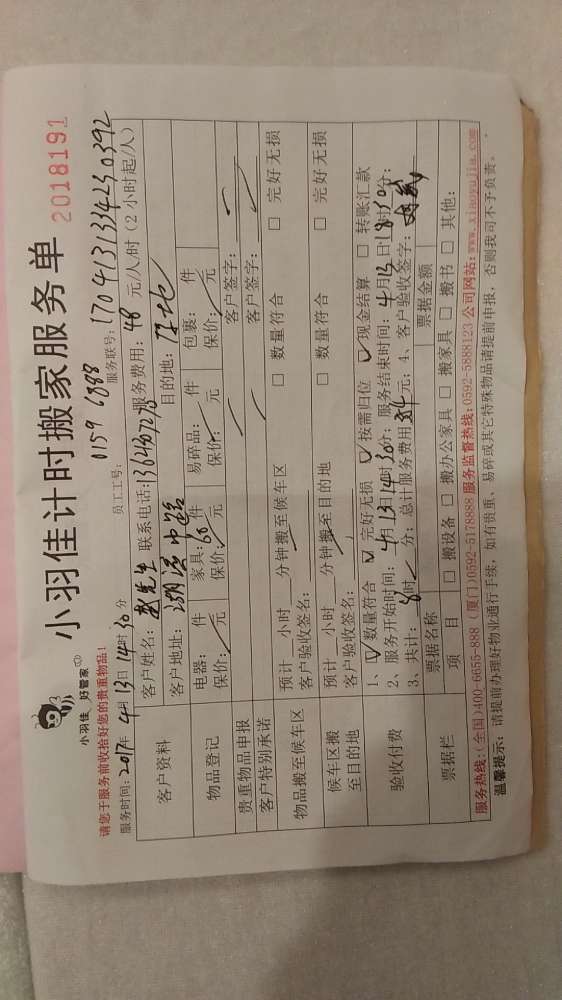 小羽佳 好管家
小羽佳计时搬家服务单
2018191
请您于服务前收拾好您的贵重物品!
员工工号: 0159 6888
服务联号: 170413133423 0392
服务时间: 2017年 4月 13日 14时 30分
服务费用: 48 元/人/时 (2小时起/人)
客户资料
客户姓名: 赵先生 联系电话:
客户地址: 目的地:
物品登记
电器: 件 家具: 60件 易碎品: 件 包裹: 件
保价: 元 保价: 元 保价: 元 保价: 元
贵重物品申报 客户签字:
客户特别承诺 客户签字:
物品搬至候车区
预计 小时 分钟搬至候车区 □ 数量符合 □ 完好无损
客户验收签名:
候车区搬至目的地
预计 小时 分钟搬至目的地 □ 数量符合 □ 完好无损
客户验收签名:
验收付费
1、☑ 数量符合 ☑ 完好无损 ☑ 按需归位 ☑ 现金结算 □ 转账汇款
2、服务开始时间: 4月 13日 14时 30分; 服务结束时间: 4月 13日 18时 30分;
3、共计: 8时 分; 总计服务费用 384 元; 4、客户验收签字:
票据栏
票据名称 票据金额
项 目 □ 搬设备 □ 搬办公家具 □ 搬家具 □ 搬书 □ 其他:
服务热线:(全国)400-6655-888 (厦门)0592-5178888 服务监督热线:0592-5888123 公司网站: www.xiaoyujia.com
温馨提示: 请提前办理好物业通行手续, 如有贵重、易碎或其它特殊物品请提前申报, 否则我司不予负责。